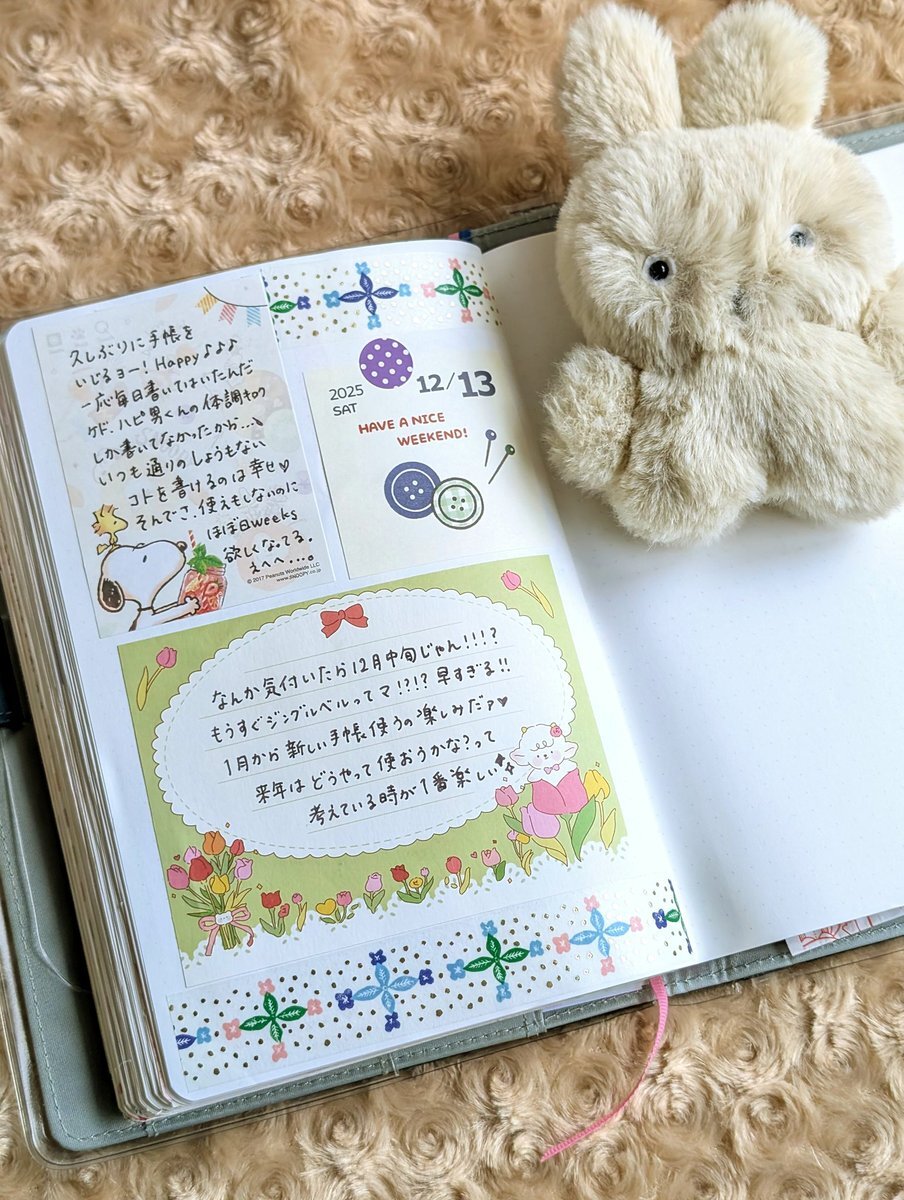 久しぶりに手帳を
いじるヨー！Happy♪♪♪
一応毎日書いてはいたんだ
ケド、ハピ男くんの体調キロク
しか書いてなかったから…、
いつも通りのしょうもない
コトを書けるのは幸せ♡
そんでさ、使えもしないのに
ほぼ日weeks
欲しくなってる。
えへへ…。
© 2017 Peanuts Worldwide LLC
www.SNOOPY.co.jp
2025
SAT
12/13
HAVE A NICE
WEEKEND!
なんか気付いたら12月中旬じゃん！！！？
もうすぐジングルベルってマ！？！？早すぎる！！
1月から新しい手帳使うの楽しみだァ♥
来年はどうやって使おうかな？って
考えている時が1番楽しい✨